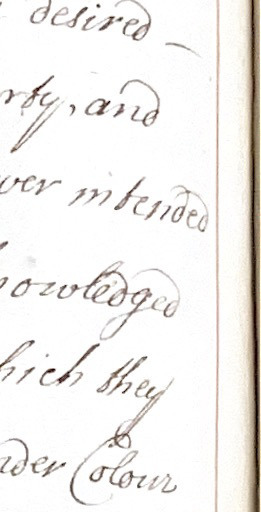 desired
rty, and
ver intended
nowledged
hich they
nder Colour